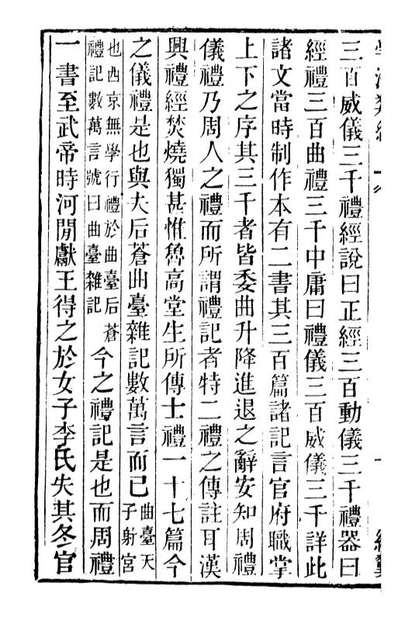 三百威儀三千禮經說曰正經三百動儀三千禮器曰
經禮三百曲禮三千中庸曰禮儀三百威儀三千詳此
諸文當時制作本有二書其三百篇諸記言官府職掌
上下之序其三千者皆委曲升降進退之辭安知周禮
儀禮乃周人之禮而所謂禮記者特二禮之傳註耳漢
興禮經焚燒獨甚惟魯高堂生所傳士禮一十七篇今
之儀禮是也與夫后蒼曲臺雜記數萬言而已曲臺天
子射宮
也西京無學行禮於曲臺后蒼
禮記數萬言號曰曲臺雜記
今之禮記是也而周禮
一書至武帝時河閒獻王得之於女子李氏失其冬官